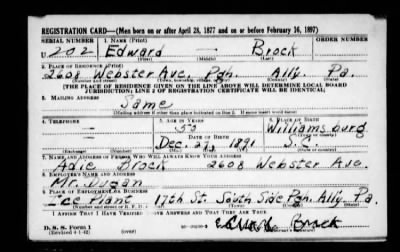 REGISTRATION CARD—(Men born on or after April 28, 1877 and on or before February 16, 1897)
SERIAL NUMBER 1. NAME (Print)
U 202 Edward — Brock
(First) (Middle) (Last)
2. PLACE OF RESIDENCE (Print)
2608 Webster Ave. Pgh. Ally. Pa.
(Number and street) (Town, township, village, or city) (County) (State)
[THE PLACE OF RESIDENCE GIVEN ON THE LINE ABOVE WILL DETERMINE LOCAL BOARD
JURISDICTION; LINE 2 OF REGISTRATION CERTIFICATE WILL BE IDENTICAL]
3. MAILING ADDRESS
Same
[Mailing address if other than place indicated on line 2. If same insert word same]
4. TELEPHONE 5. AGE IN YEARS 6. PLACE OF BIRTH
— 50 Williamsburg
DATE OF BIRTH (Town or county)
— Dec. 27, 1891 S.C.
(Exchange) (Number) (Mo.) (Day) (Yr.) (State or country)
7. NAME AND ADDRESS OF PERSON WHO WILL ALWAYS KNOW YOUR ADDRESS
Brock 2608 Webster Ave.
8. EMPLOYER'S NAME AND ADDRESS
Mr. Dugan
9. PLACE OF EMPLOYMENT OR BUSINESS
Ice Plant 17th St. South Side Pgh. Ally. Pa.
(Number and street or R. F. D. number) (Town) (County) (State)
I AFFIRM THAT I HAVE VERIFIED ABOVE ANSWERS AND THAT THEY ARE TRUE.
Edward Brock
D. S. S. Form 1
(Revised 4-1-42) (over)